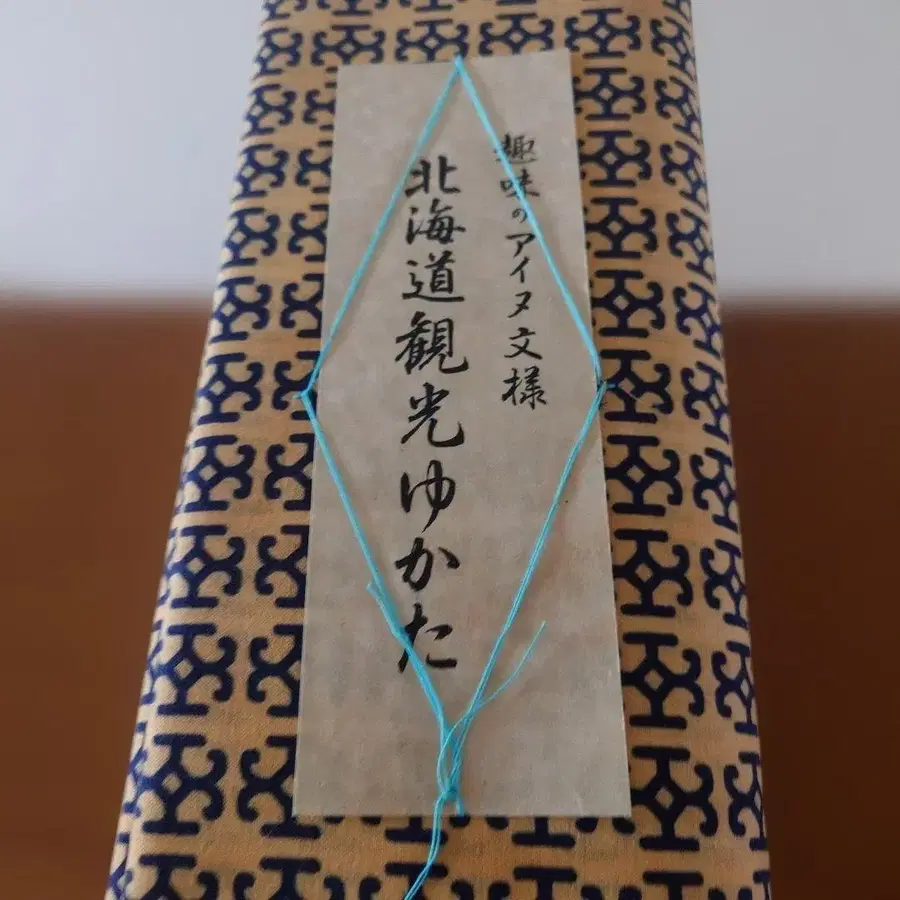 趣味のアイヌ文様
北海道観光ゆかた